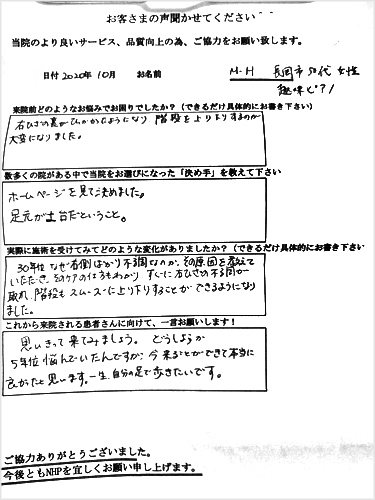 お客さまの声聞かせてください^^
当院のより良いサービス、品質向上の為、ご協力をお願い致します。
日付 2020年 10月 お名前 M.H 長岡市 50代 女性
趣味ピアノ
来院前どのようなお悩みでお困りでしたか？（できるだけ具体的にお書き下さい）
右ひざの裏がひっかかるようになり 階段を上り下りするのが
大変になりました。
数多くの院がある中で当院をお選びになった「決め手」を教えて下さい
ホームページを見て決めました。
足元が土台だということ。
実際に施術を受けてみてどのような変化がありましたか？（できるだけ具体的にお書き下さい
30年位 なぜ右側ばかり不調なのか、その原因を教えて
いただき、そのケアの仕方もわかり、すぐに右ひざの不調が
取れ、階段も スムーズに上り下りすることができるようになり
ました。
これから来院される患者さんに向けて、一言お願いします！
思いきって来てみましょう。 どうしようか
5年位悩んでいたんですが、今来ることができて本当に
良かったと思います。一生、自分の足で歩きたいです。
ご協力ありがとうございました。
今後ともNHPを宜しくお願い申し上げます。